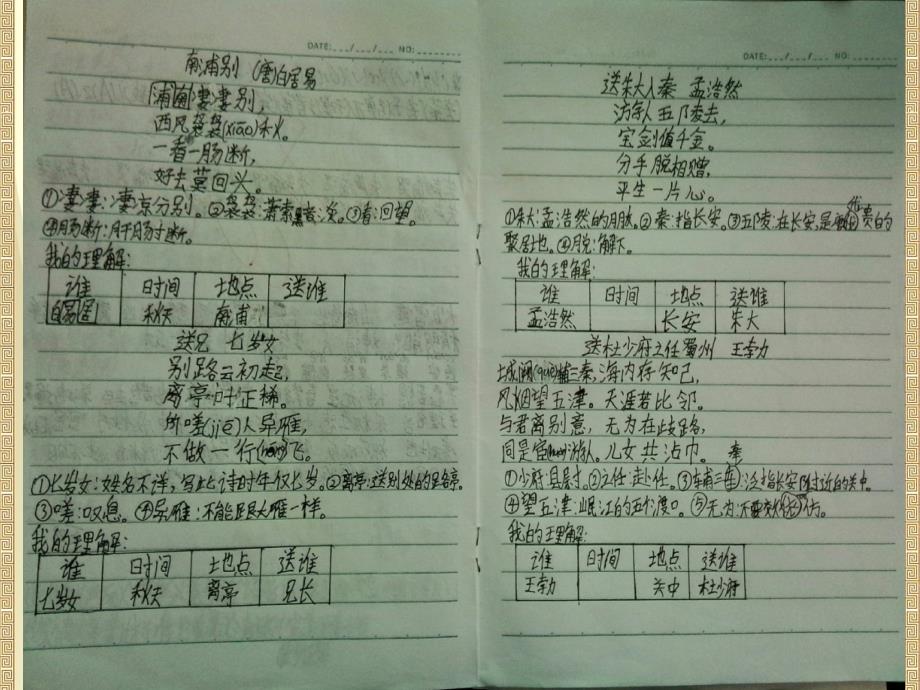 DATE:___/___/___ NO:________
南浦别 (唐)白居易
南浦凄凄别,
西风袅袅(xiāo)秋。
一看一肠断,
好去莫回头。
①凄凄:凄凉分别。②袅袅:萧索黯淡。③看:回望。
④肠断:肝肠寸断。
我的理解:
谁 时间 地点 送谁
白居易 秋天 南浦
送兄 七岁女
别路云初起,
离亭叶正稀。
所嗟(jiē)人异雁,
不做一行(háng)飞。
①七岁女:姓名不详,写此诗时年仅七岁。②离亭:送别处的路亭。
③嗟:叹息。④异雁:不能跟大雁一样。
我的理解:
谁 时间 地点 送谁
七岁女 秋天 离亭 兄长
DATE:___/___/___ NO:________
送朱大入秦 孟浩然
游人五陵去,
宝剑值千金。
分手脱相赠,
平生一片心。
①朱大:孟浩然的朋友。②秦:指长安。③五陵:在长安,是贵的
聚居地。④脱:解下。
我的理解:
谁 时间 地点 送谁
孟浩然 长安 朱大
送杜少府之任蜀州 王勃
城阙(què)辅三秦,海内存知己,
风烟望五津。天涯若比邻。
与君离别意,无为在歧路,
同是宦(huàn)游人。儿女共沾巾。
①少府:县尉。②之任:赴任。③辅三秦:泛指长安附近的关中。
④望五津:岷江的五个渡口。⑤无为:不要效仿。
我的理解:
谁 时间 地点 送谁
王勃 关中 杜少府